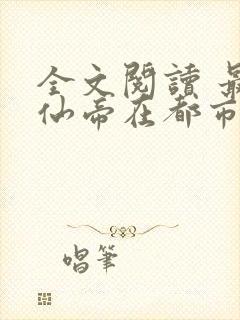 全文閱讀 最
仙帝在都市
唱筆